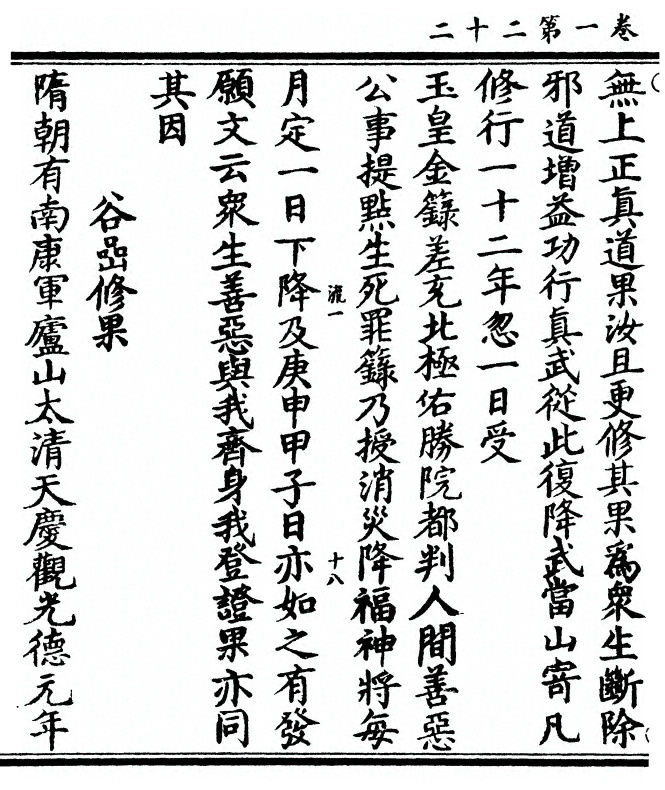 卷一第二十二
無上正眞道果汝且更修其果爲衆生斷除
邪道增益功行眞武從此復降武當山寄凡
修行一十二年忽一日受
玉皇金籙差充北極佑勝院都判人間善惡
公事提點生死罪籙乃授消災降福神將每
流一
十八
月定一日下降及庚申甲子日亦如之有發
願文云衆生善惡與我齊身我登證果亦同
其因
谷嵒修果
隋朝有南康軍廬山太清天慶觀光德元年